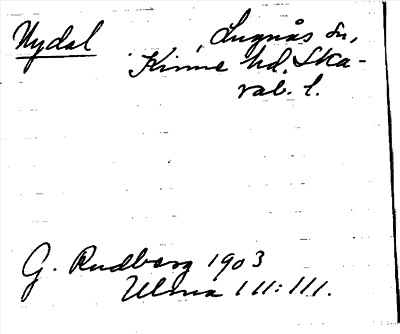 Nydal
Lugnås sn,
Kinne hd. Ska-
rab. l.
G. Rudberg 1903
Ulma 111:111.